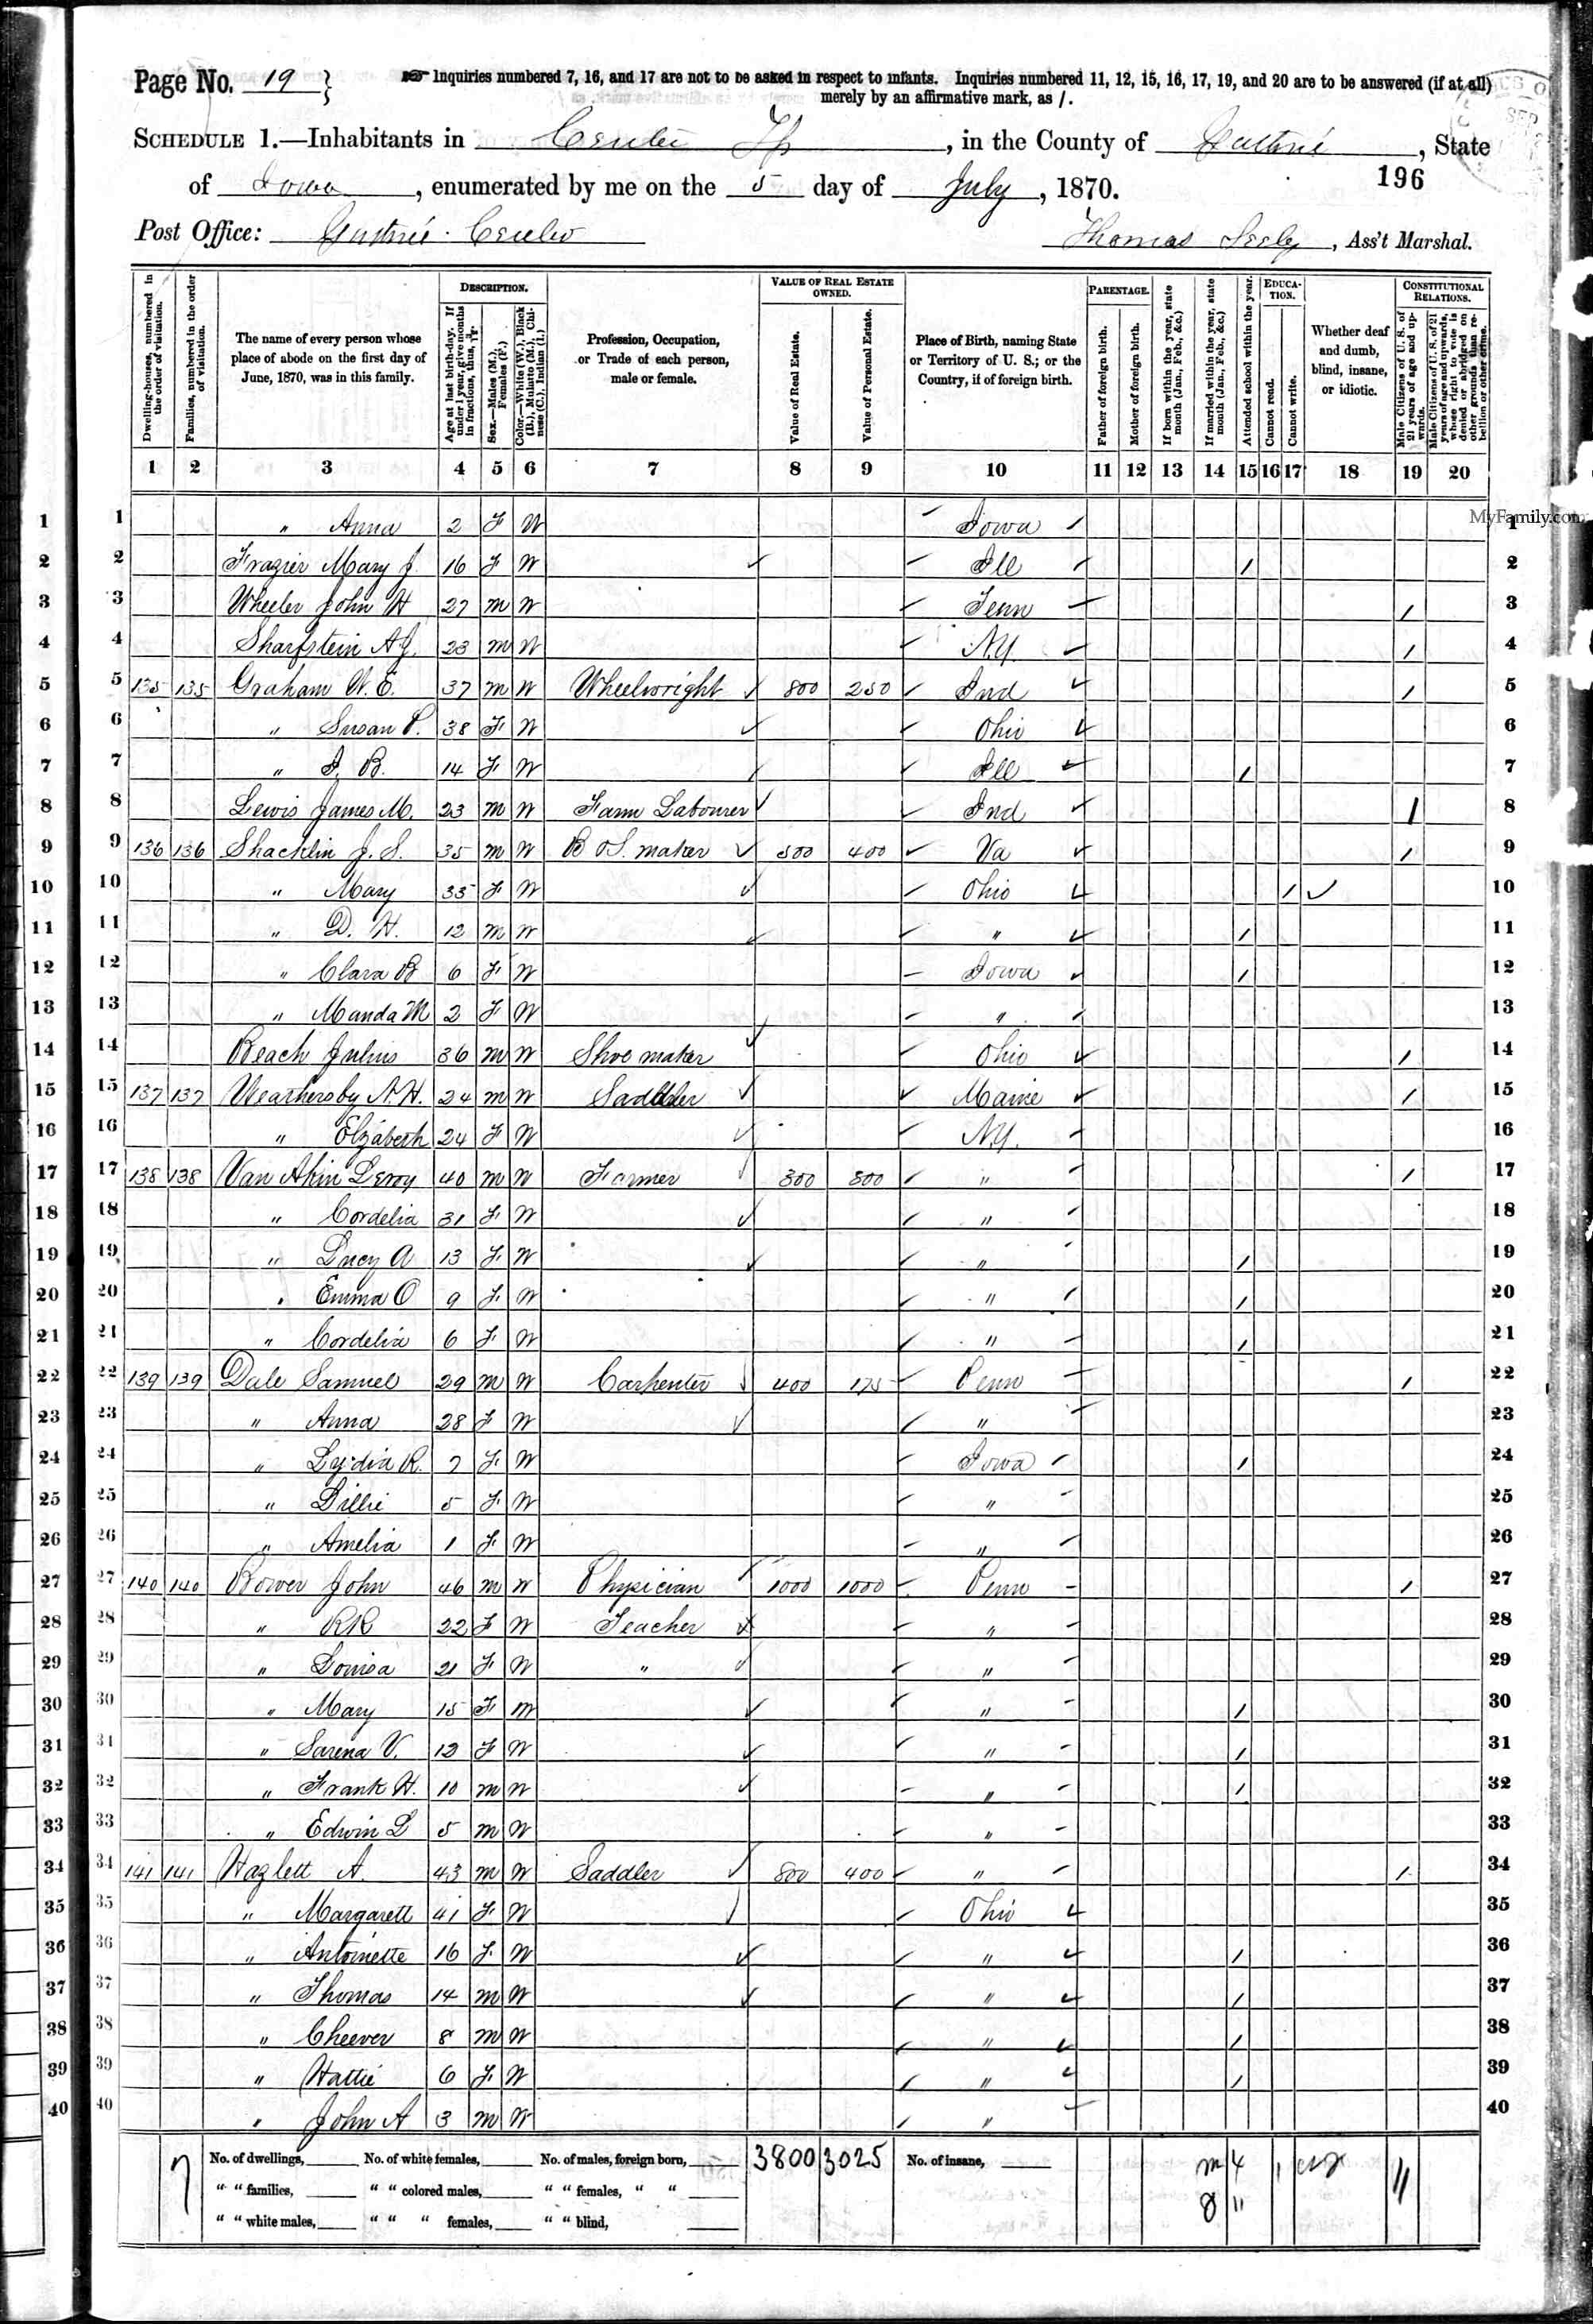 Page No. 19 } Inquiries numbered 7, 16, and 17 are not to be asked in respect to infants. Inquiries numbered 11, 12, 15, 16, 17, 19, and 20 are to be answered (if at all)
merely by an affirmative mark, as /.
SCHEDULE 1.—Inhabitants in Center Tp, in the County of Guthrie, State
of Iowa, enumerated by me on the 5 day of July, 1870.
196
Post Office: Guthrie Center
Thomas Seely, Ass't Marshal.
Dwelling-houses, numbered in the order of visitation.
Families, numbered in the order of visitation.
The name of every person whose place of abode on the first day of June, 1870, was in this family.
DESCRIPTION.
Age at last birth-day. If under 1 year, give months in fractions, thus, 3/12.
Sex.—Males (M.), Females (F.)
Color.—White (W.), Black (B.), Mulatto (M.), Chinese (C.), Indian (I.)
Profession, Occupation, or Trade of each person, male or female.
VALUE OF REAL ESTATE OWNED.
Value of Real Estate.
Value of Personal Estate.
Place of Birth, naming State or Territory of U. S.; or the Country, if of foreign birth.
PARENTAGE.
Father of foreign birth.
Mother of foreign birth.
If born within the year, state month (Jan., Feb., &c.)
If married within the year, state month (Jan., Feb., &c.)
Attended school within the year.
EDUCATION.
Cannot read.
Cannot write.
Whether deaf and dumb, blind, insane, or idiotic.
CONSTITUTIONAL RELATIONS.
Male Citizens of U. S. of 21 years of age and upwards.
Male Citizens of U. S. of 21 years of age and upwards, whose right to vote is denied or abridged on other grounds than rebellion or other crime.
1 2 3 4 5 6 7 8 9 10 11 12 13 14 15 16 17 18 19 20
1 1 " Anna 2 F W Iowa 1
MyFamily.com
2 2 Frazier Mary J. 16 F W Ill / 2
3 3 Wheeler John H 27 m W Tenn / 3
4 4 Sharfstein A J. 23 m W N.Y. / 4
5 5 135 135 Graham W. E. 37 m W Wheelwright 800 250 Ind / 5
6 6 " Susan P. 38 F W Ohio 6
7 7 " I. B. 14 F W Ill / 7
8 8 Lewis James M. 23 m W Farm Labourer Ind / 8
9 9 136 136 Shacklin J. S. 35 m W B & S. maker 500 400 Va / 9
10 10 " Mary 35 F W Ohio / 10
11 11 " D. H. 12 m W " / 11
12 12 " Clara B 6 F W Iowa / 12
13 13 " Manda M 2 F W " 13
14 14 Beach Julius 36 m W Shoe maker Ohio / 14
15 15 137 137 Weathersby N. H. 24 m W Saddler Maine / 15
16 16 " Elzabeth 24 F W N.Y. 16
17 17 138 138 Van Akin Leroy 40 m W Farmer 300 500 " / 17
18 18 " Cordelia 31 F W " 18
19 19 " Lucy A 13 F W " / 19
20 20 " Emma O 9 F W " / 20
21 21 " Cordelia 6 F W " / 21
22 22 139 139 Dale Samuel 29 m W Carpenter 400 175 Penn / 22
23 23 " Anna 28 F W " 23
24 24 " Lydia R. 7 F W Iowa / 24
25 25 " Lillie 5 F W " 25
26 26 " Amelia 1 F W " 26
27 27 140 140 Bower John 46 m W Physician 1000 1000 Penn / 27
28 28 " RR 22 F W Teacher " 28
29 29 " Louisa 21 F W " " 29
30 30 " Mary 15 F M " / 30
31 31 " Sarena V. 12 F W " / 31
32 32 " Frank H. 10 m W " / 32
33 33 " Edwin L 5 m W " 33
34 34 141 141 Hazlett A. 43 m W Saddler 800 400 " / 34
35 35 " Margarett 41 F W Ohio 35
36 36 " Antoinette 16 F W " / 36
37 37 " Thomas 14 m W " / 37
38 38 " Cheever 8 m W " / 38
39 39 " Hattie 6 F W " / 39
40 40 " John A 3 m W " 40
7 No. of dwellings, No. of white females, No. of males, foreign born, 3800 3025 No. of insane, m 4 1
" " families, " " colored males, " " females, " " 8 11
" " white males, " " " females, " " blind,